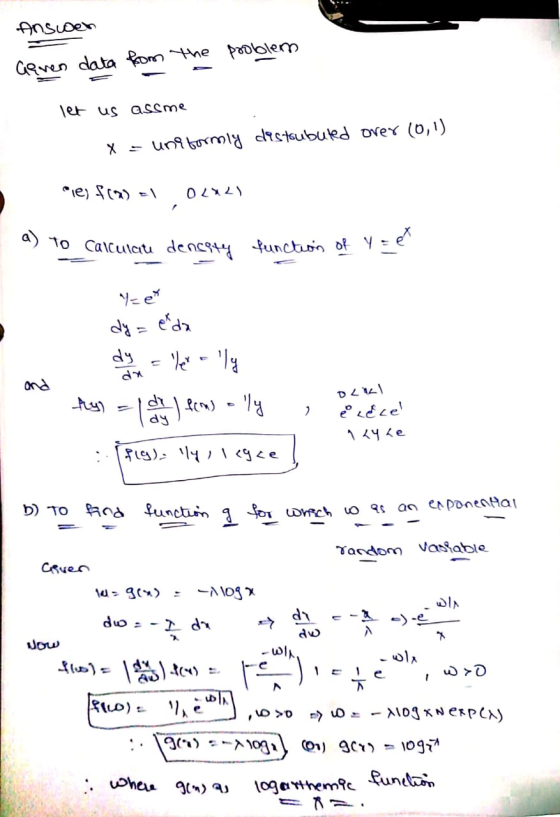 Answer
Given data from the problem
let us assme
x = uniformly distributed over (0,1)
ie) f(x) = 1 , 0<x<1
a) To Calculate density function of Y = e^x
Y = e^x
dy = e^x dx
dy/dx = 1/e^x = 1/y
and f(y) = |dx/dy| f(x) = 1/y , 0<x<1
e^0<e^x<e^1
1<y<e
∴ f(y) = 1/y , 1<y<e
b) To find function g for which w is an exponential
random variable
Given
w = g(x) = -λlogx
dw = -λ/x dx ⇒ dx/dw = -x/λ ⇒ -e^-w/λ / λ
Now
f(w) = |dx/dw| f(x) = |-e^-w/λ / λ| 1 = 1/λ e^-w/λ , w>0
f(w) = 1/λ e^-w/λ , w>0 ⇒ w = -λlogx ~ exp(λ)
∴ g(x) = -λlogx (or) g(x) = logx^-λ
∴ where g(x) is logarthemic function